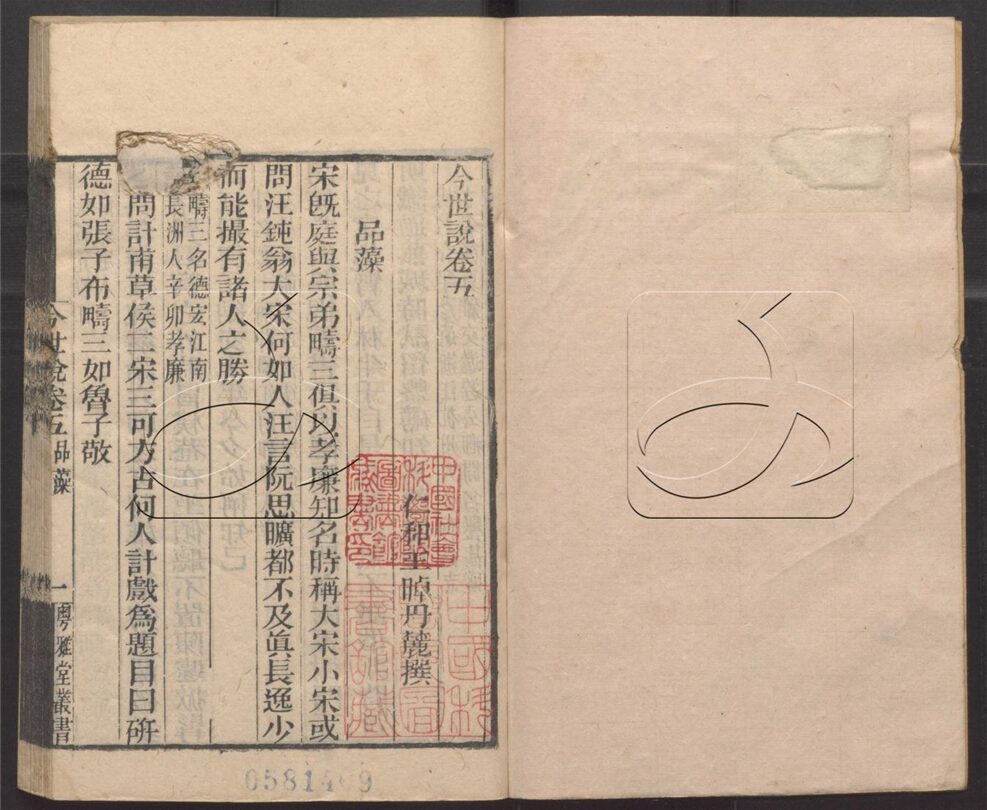 今世說卷五
仁和王晫丹麓撰
品藻
宋旣庭與宗弟疇三俱以孝廉知名時稱大宋小宋或
問汪鈍翁大宋何如人汪言阮思曠都不及眞長逸少
而能撮有諸人之勝
疇三名德宏江南
長洲人辛卯孝廉
問計甫草侯二宋三可方古何人計戲爲題目曰研
德如張子布疇三如魯子敬
今世說卷五 品藻 一 粤雅堂叢書
中國社會
科學院
圖書館
藏書印